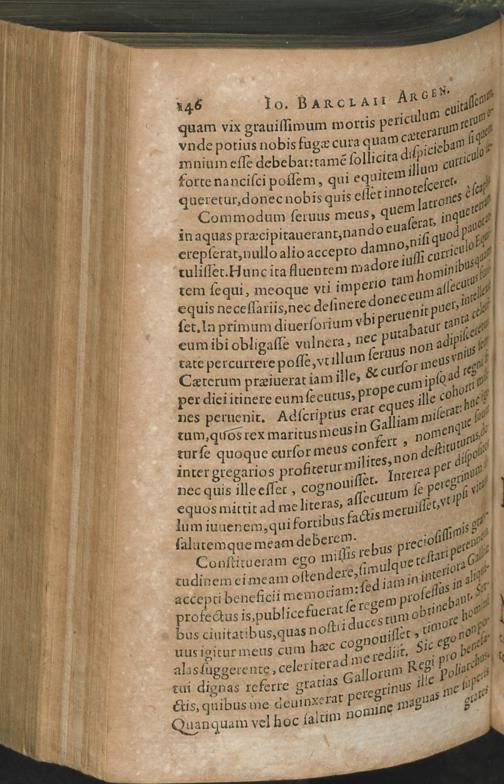 146 Io. BARCLAII ARGEN.
quam vix grauissimum mortis periculum euitassemus,
vnde potius nobis fugæ cura quam cæterarum rerum o-
mnium esse debebat: tamē sollicita dispiciebam si quem
forte nancisci possem, qui equitem illum curriculo se-
queretur, donec nobis quis esset innotesceret.
Commodum seruus meus, quem latrones è scapha
in aquas præcipitauerant, nando euaserat, inque terram
erepserat, nullo alio accepto damno, nisi quod pauorem
tulisset. Hunc ita fluentem madore iussi curriculo Equi-
tem sequi, meoque vti imperio tam hominibus quam
equis necessariis, nec desinere donec eum assecutus fuis-
set. In primum diuersorium vbi peruenit puer, intellexit
eum ibi obligasse vulnera, nec putabatur tanta celeri-
tate percurrere posse, vt illum seruus non adipisceretur.
Cæterum præiuerat iam ille, & cursor meus vnius sem-
per diei itinere eum secutus, prope cum ipso ad regni fi-
nes peruenit. Adscriptus erat eques ille cohorti mili-
tum, quos rex maritus meus in Galliam miserat: huc igi-
tur se quoque cursor meus confert, nomenque suum
inter gregarios profitetur milites, non destituturus, do-
nec quis ille esset, cognouisset. Interea per dispositos
equos mittit ad me literas, assecutum se peregrinum il-
lum iuuenem, qui fortibus factis meruisset, vt ipsi vitam
salutemque meam deberem.
Constitueram ego missis rebus preciosissimis grati-
tudinem ei meam ostendere, simulque testari perennem
accepti beneficii memoriam: sed iam in interiora Galliæ
profectus is, publice fuerat se regem professus in aliqui-
bus ciuitatibus, quas nostri duces tum obtinebant. Ser-
uus igitur meus cum hæc cognouisset, timore homini
alas suggerente, celeriter ad me rediit. Sic ego non po-
tui dignas referre gratias Gallorum Regi pro benefa-
ctis, quibus me deuinxerat peregrinus ille Poliarchus.
Quanquam vel hoc saltim nomine magnas me superis
grates